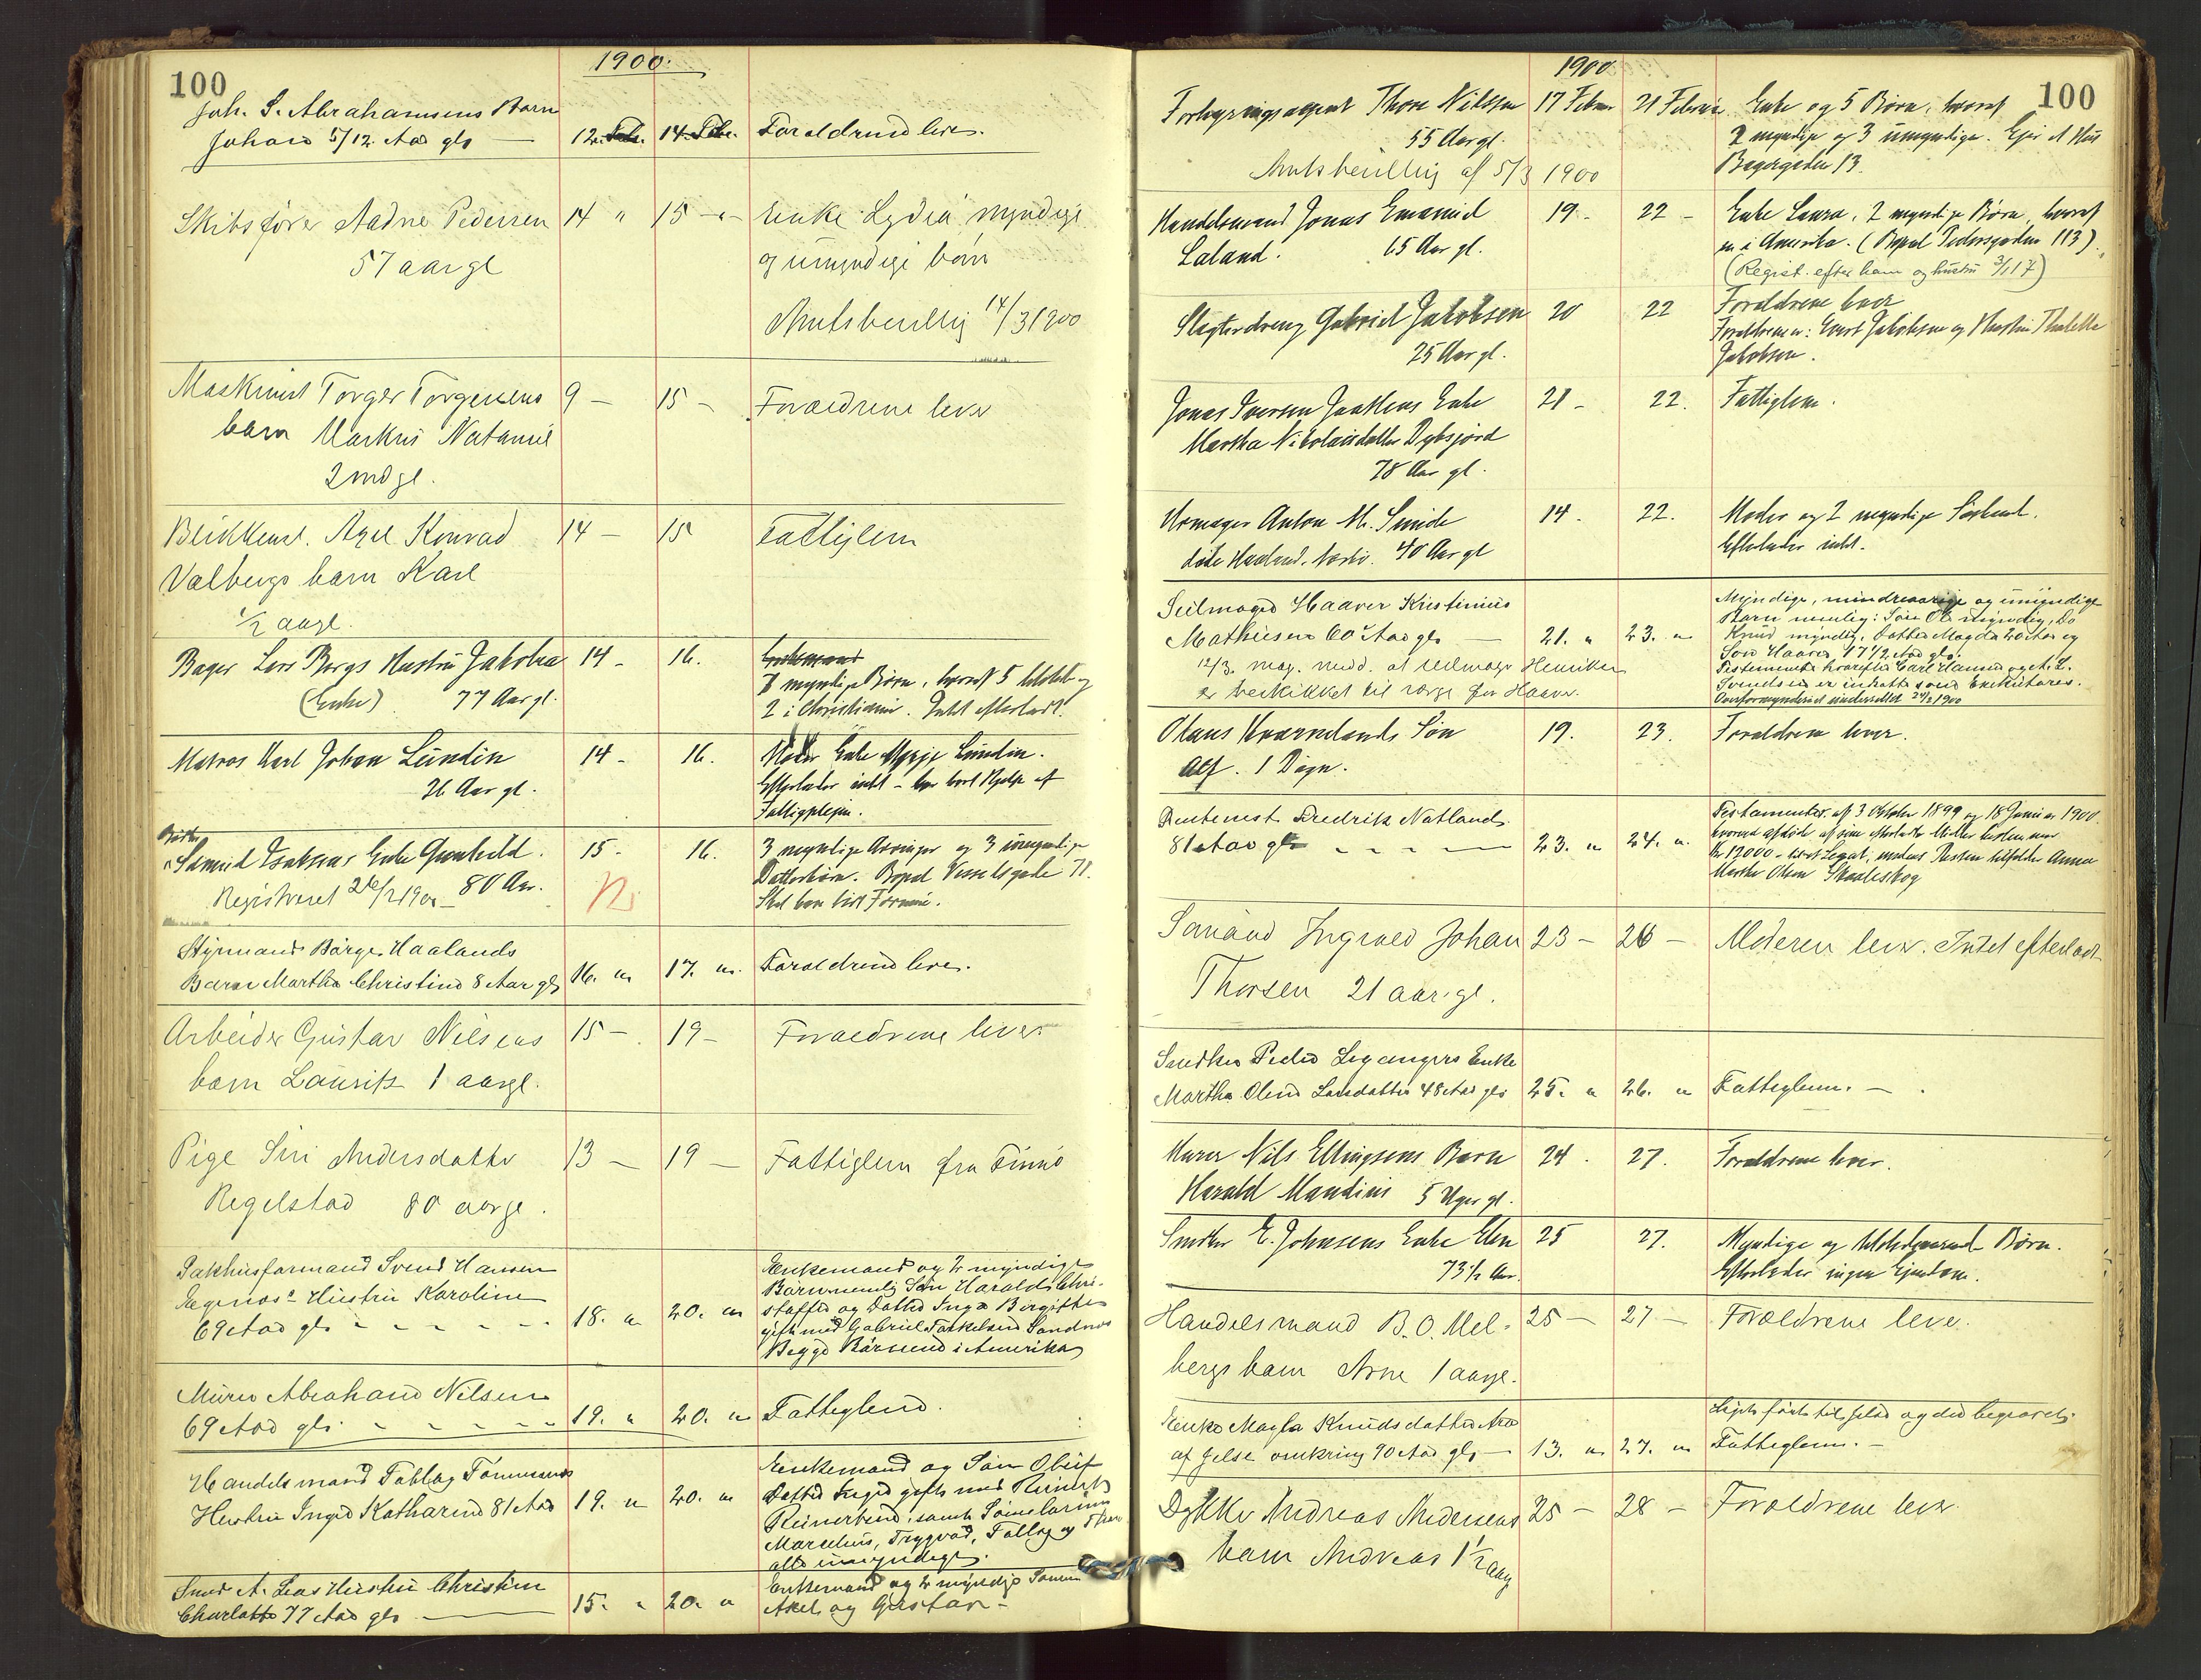 100
1900.
Joh. S. Abrahamsens Barn
Johan 5/12 Aar gl. — 12. Febr. 14. Febr. Forældrene lever.
Skibsfører Aadne Pedersen 14 " 15 - " - Enke Lydia, myndige
57 aar gl og umyndige børn
Amtsbevillig 14/3 1900
Maskinist Torger Torgersens 9 — 15 - Forældrene lever
barn Markus Nataniel
2 md gl.
Blikkensl. Axel Konrad 14 — 15 Fattiglem
Valbergs barn Karl
1/2 aar gl.
Bager Lars Bergs Hustru Jakobea 14 - 16. Enkemand
(Enke) 77 Aar gl. 7 myndige Børn, hvoraf 5 tilstede og
2 i Christiania. Intet efterladt.
Matros Karl Johan Lundin 14 - 16. Moder Enke Lundin.
26 Aar gl. Efterlader intet - har havt Hjelp af
Fattigplejen.
Samuel Isaksens Enke Gunhild. 15 - 16. 3 myndige Arvinger og 3 umyndige
Registreret 26/2 1900 - 80 Aar. Datterbørn. Bopæl Vesselsgade 71.
Skal have lidt Formue.
Styrmand Børge Haalands
Barn Martha Christine 8 Aar gl. 16. " 17. " Forældrene lever.
Arbeider Gustav Nilsens 15 — 19 - Forældrene lever.
barn Lauritz 1 aar gl.
Pige Siri Andersdatter 13 — 19 — Fattiglem fra Finnø
Regelstad 80 aar gl.
Pakhusformand Svend Hansen Enkemand og 2 myndige
Hustru Karoline Børn nemlig Søn Harald Chri-
69 Aar gl. 18. " 20. " stoffer og Datter Inga Birgitte
gift med Gabriel Sandnes
Begge Børnene i Amerika
Murer Abraham Nilsen
69 Aar gl. 19. " 20. " Fattiglem.
Handelsmand Tallag Tønnesens Enkemand og Søn Oluf
Hustru Inger Katharine 81 Aar 19. " 20. " Datter Inger gift med Reinert
Reinertsen, samt Sønne
Marselius, Trygvad, Tallag og
alle umyndige.
Smed A. Hustru Christine Enkemand og 2 myndige Sønner
Charlotte 77 Aar gl. — 15. " 20. " Axel og Gustav -
1900
100
Forhyringsagent Thore Nilssen 17 Febr 21 Februar Enke og 5 Børn, hvoraf
55 Aar gl. 2 myndige og 3 umyndige. Ejer et Hus
Amtsbevillig af 5/3 1900 Bagergaden 13.
Handelsmand Jonas Emanuel 19 - 22 - Enke Laura, 2 myndige Børn, hvoraf
Laland. 65 Aar gl. en i Amerika. (Bopæl Pedersgaden 113).
(Regist. efter ham og hustru 3/1 17)
Slagterdreng Gabriel Jakobsen 20 22 Forældrene lever
25 Aar gl. Forældrene er: Jakobsen og Hustru
Jakobsen.
Jonas Iversen Enke 21 - 22. Fattiglem.
Martha Nikolaisdatter Dybsjord
78 Aar gl.
Urmager Anton M. Smide 14. 22. Moder og 2 myndige Søskend.
døde 40 Aar gl Efterlader intet.
Seilmager Haaver Kristinius Myndige, mindreaarige og umyndige
Mathiesen 60 Aar gl. — 21. " 23. " Børn nemlig: Søn Ole myndig, Do
12/3. mag. medd. at Seilmager Henriksen Knud myndig, Datter Magda 20 Aar og
er beskikket til værge for Haaver. Søn Haaver 17 1/2 Aar gl.
Testamente hvorefter Carl Hansen og A. L.
Svendsen er indsatte som Exekutores.
Overformynderiet underrettet 24/2 1900
Olaus Kvernelands Søn 19. 23. Forældrene lever.
Alf. 1 Døgn.
Rentenist Fredrik Natland Testamenter af 3 Oktober 1899 og 18 Januar 1900.
81 Aar gl. — 23. " 24. " hvorved afdøde af sine
Kr 12000 - Legat, medens Resten tilfalder Anna
Marthe Olsen Skaaleskog
Sømand Ingvald Johan 23 — 26 — Moderen lever. Intet efterladt
Thorsen 21 aar gl.
Snedker Peder Enke
Martha Olene Larsdatter 48 Aar gl. 25. " 26. " Fattiglem. —
Murer Nils Ellingsens Barn 24. 27. Forældrene lever.
Harald Mandius 5 Uger gl.
Snedker E. Johnsens Enke Elen 25 27. Myndige og Børn.
73 1/2 Aar. Efterlader ingen Ejendom.
Handelsmand B. O. Mel- 25 — 27 — Forældrene lever.
bergs barn Arne 1 aar gl.
Enke Magla Knudsdatter Liget ført til Jelse og der begravet.
af Jelse omkring 70 Aar gl. — 13. " 27. " Fattiglem. —
Dykker Andreas Andersens 25 — 28 — Forældrene lever
barn Andreas 1 1/2 aar